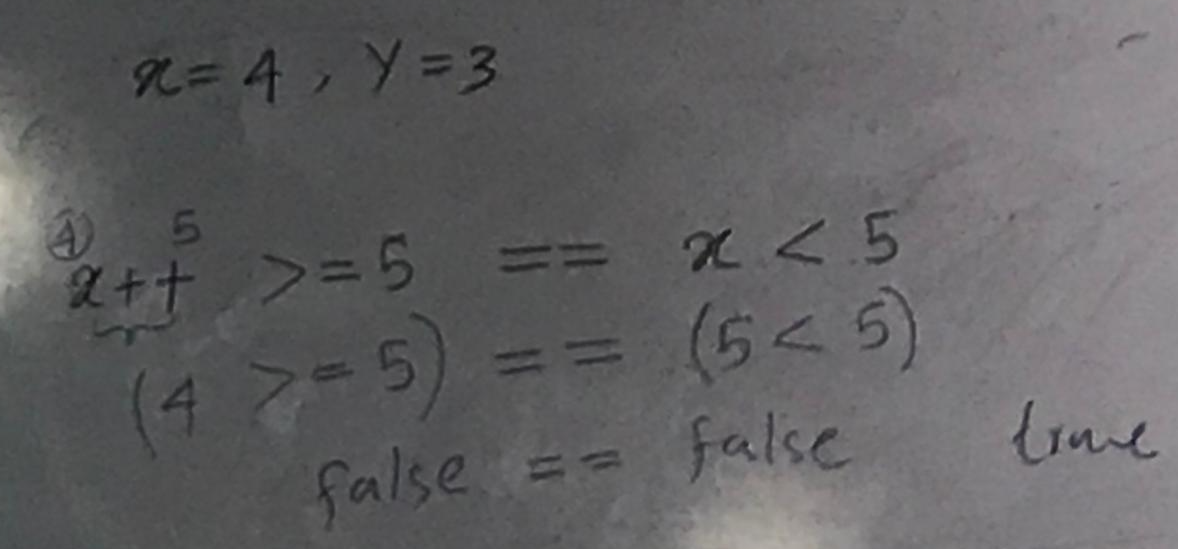 x = 4 , Y = 3
④ 5
x++ >= 5 == x < 5
(4 >= 5) == (5 < 5)
false == false true